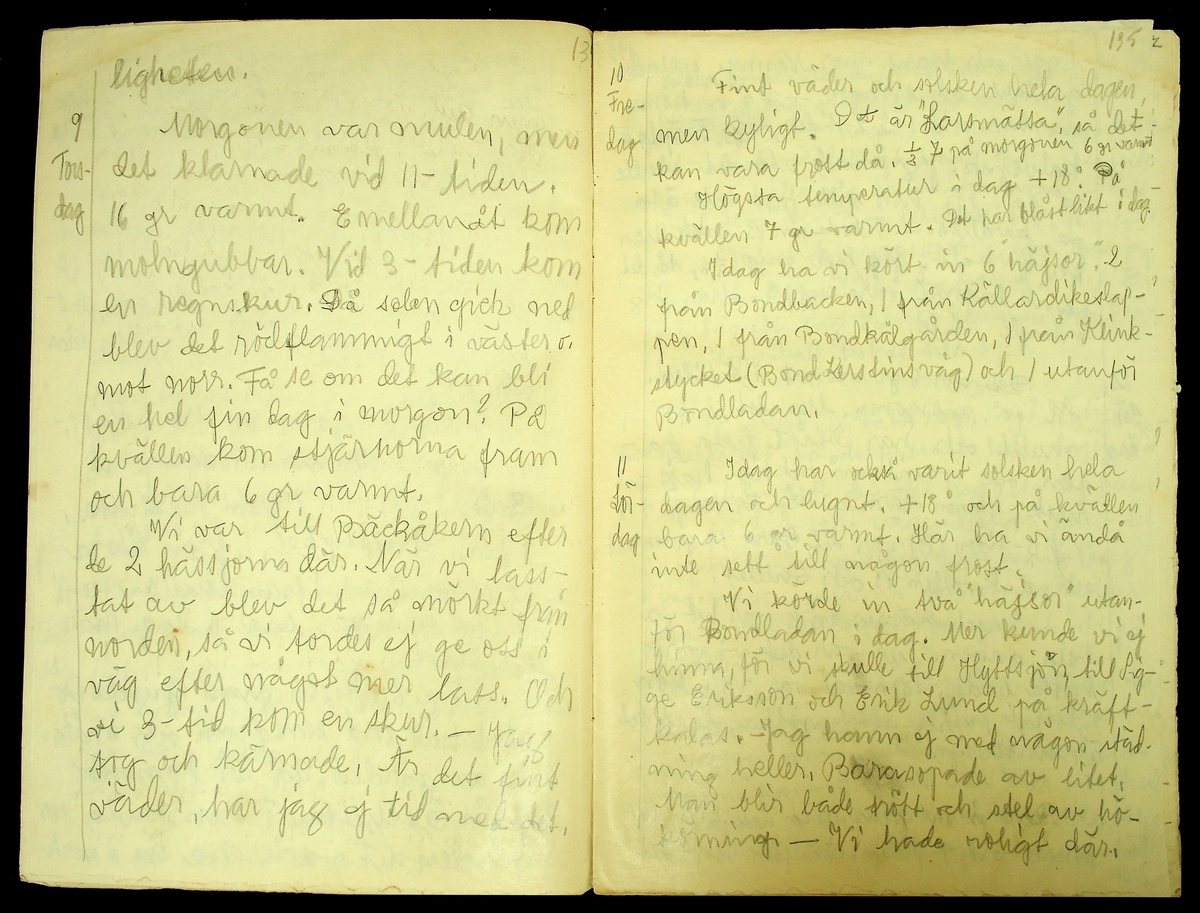 13
ligheten.
9
Tors-
dag
Morgonen var mulen, men
det klarnade vid 11-tiden.
16 gr varmt. Emellanåt kom
molngubbar. Vid 3-tiden kom
en regnskur. Då solen gick ned
blev det rödflammigt i väster o.
mot norr. Få se om det kan bli
en hel fin dag i morgon? På
kvällen kom stjärnorna fram
och bara 6 gr varmt.
Vi var till Bäckåkern efter
de 2 hässjorna där. När vi lass-
tat av blev det så mörkt från
norden, så vi tordes ej ge oss i
väg efter något mer lass. Och
vi 3-tid kom en skur. — Jag
tog och kärnade. Är det fint
väder, har jag ej tid med det.
135
10
Fre-
dag
Fint väder och solsken hela dagen,
men kyligt. Det är "Larsmässa", så det
kan vara frost då. ½ 7 på morgonen 6 gr varmt
Högsta temperatur i dag +18°. På
kvällen 7 gr varmt. Det har blåst likt i dag.
Idag ha vi kört in 6 "häjsor". 2
från Bondbacken, 1 från Källardikeslap-
pen, 1 från Bondkålgården, 1 från Klink-
stycket (Bond Kerstins väg) och 1 utanför
Bondladan.
11
Lör-
dag
Idag har också varit solsken hela
dagen och lugnt. +18° och på kvällen
bara 6 gr varmt. Här ha vi ändå
inte sett till någon frost.
Vi körde in två "häjsor" utan-
för Bondladan i dag. Mer kunde vi ej
hinna, för vi skulle till Hyttsjön, till Sig-
ge Eriksson och Erik Lund på kräft-
kalas. — Jag hann ej med någon städ-
ning heller. Bara sopade av litet.
Man blir både trött och stel av hö-
körning. — Vi hade roligt där.